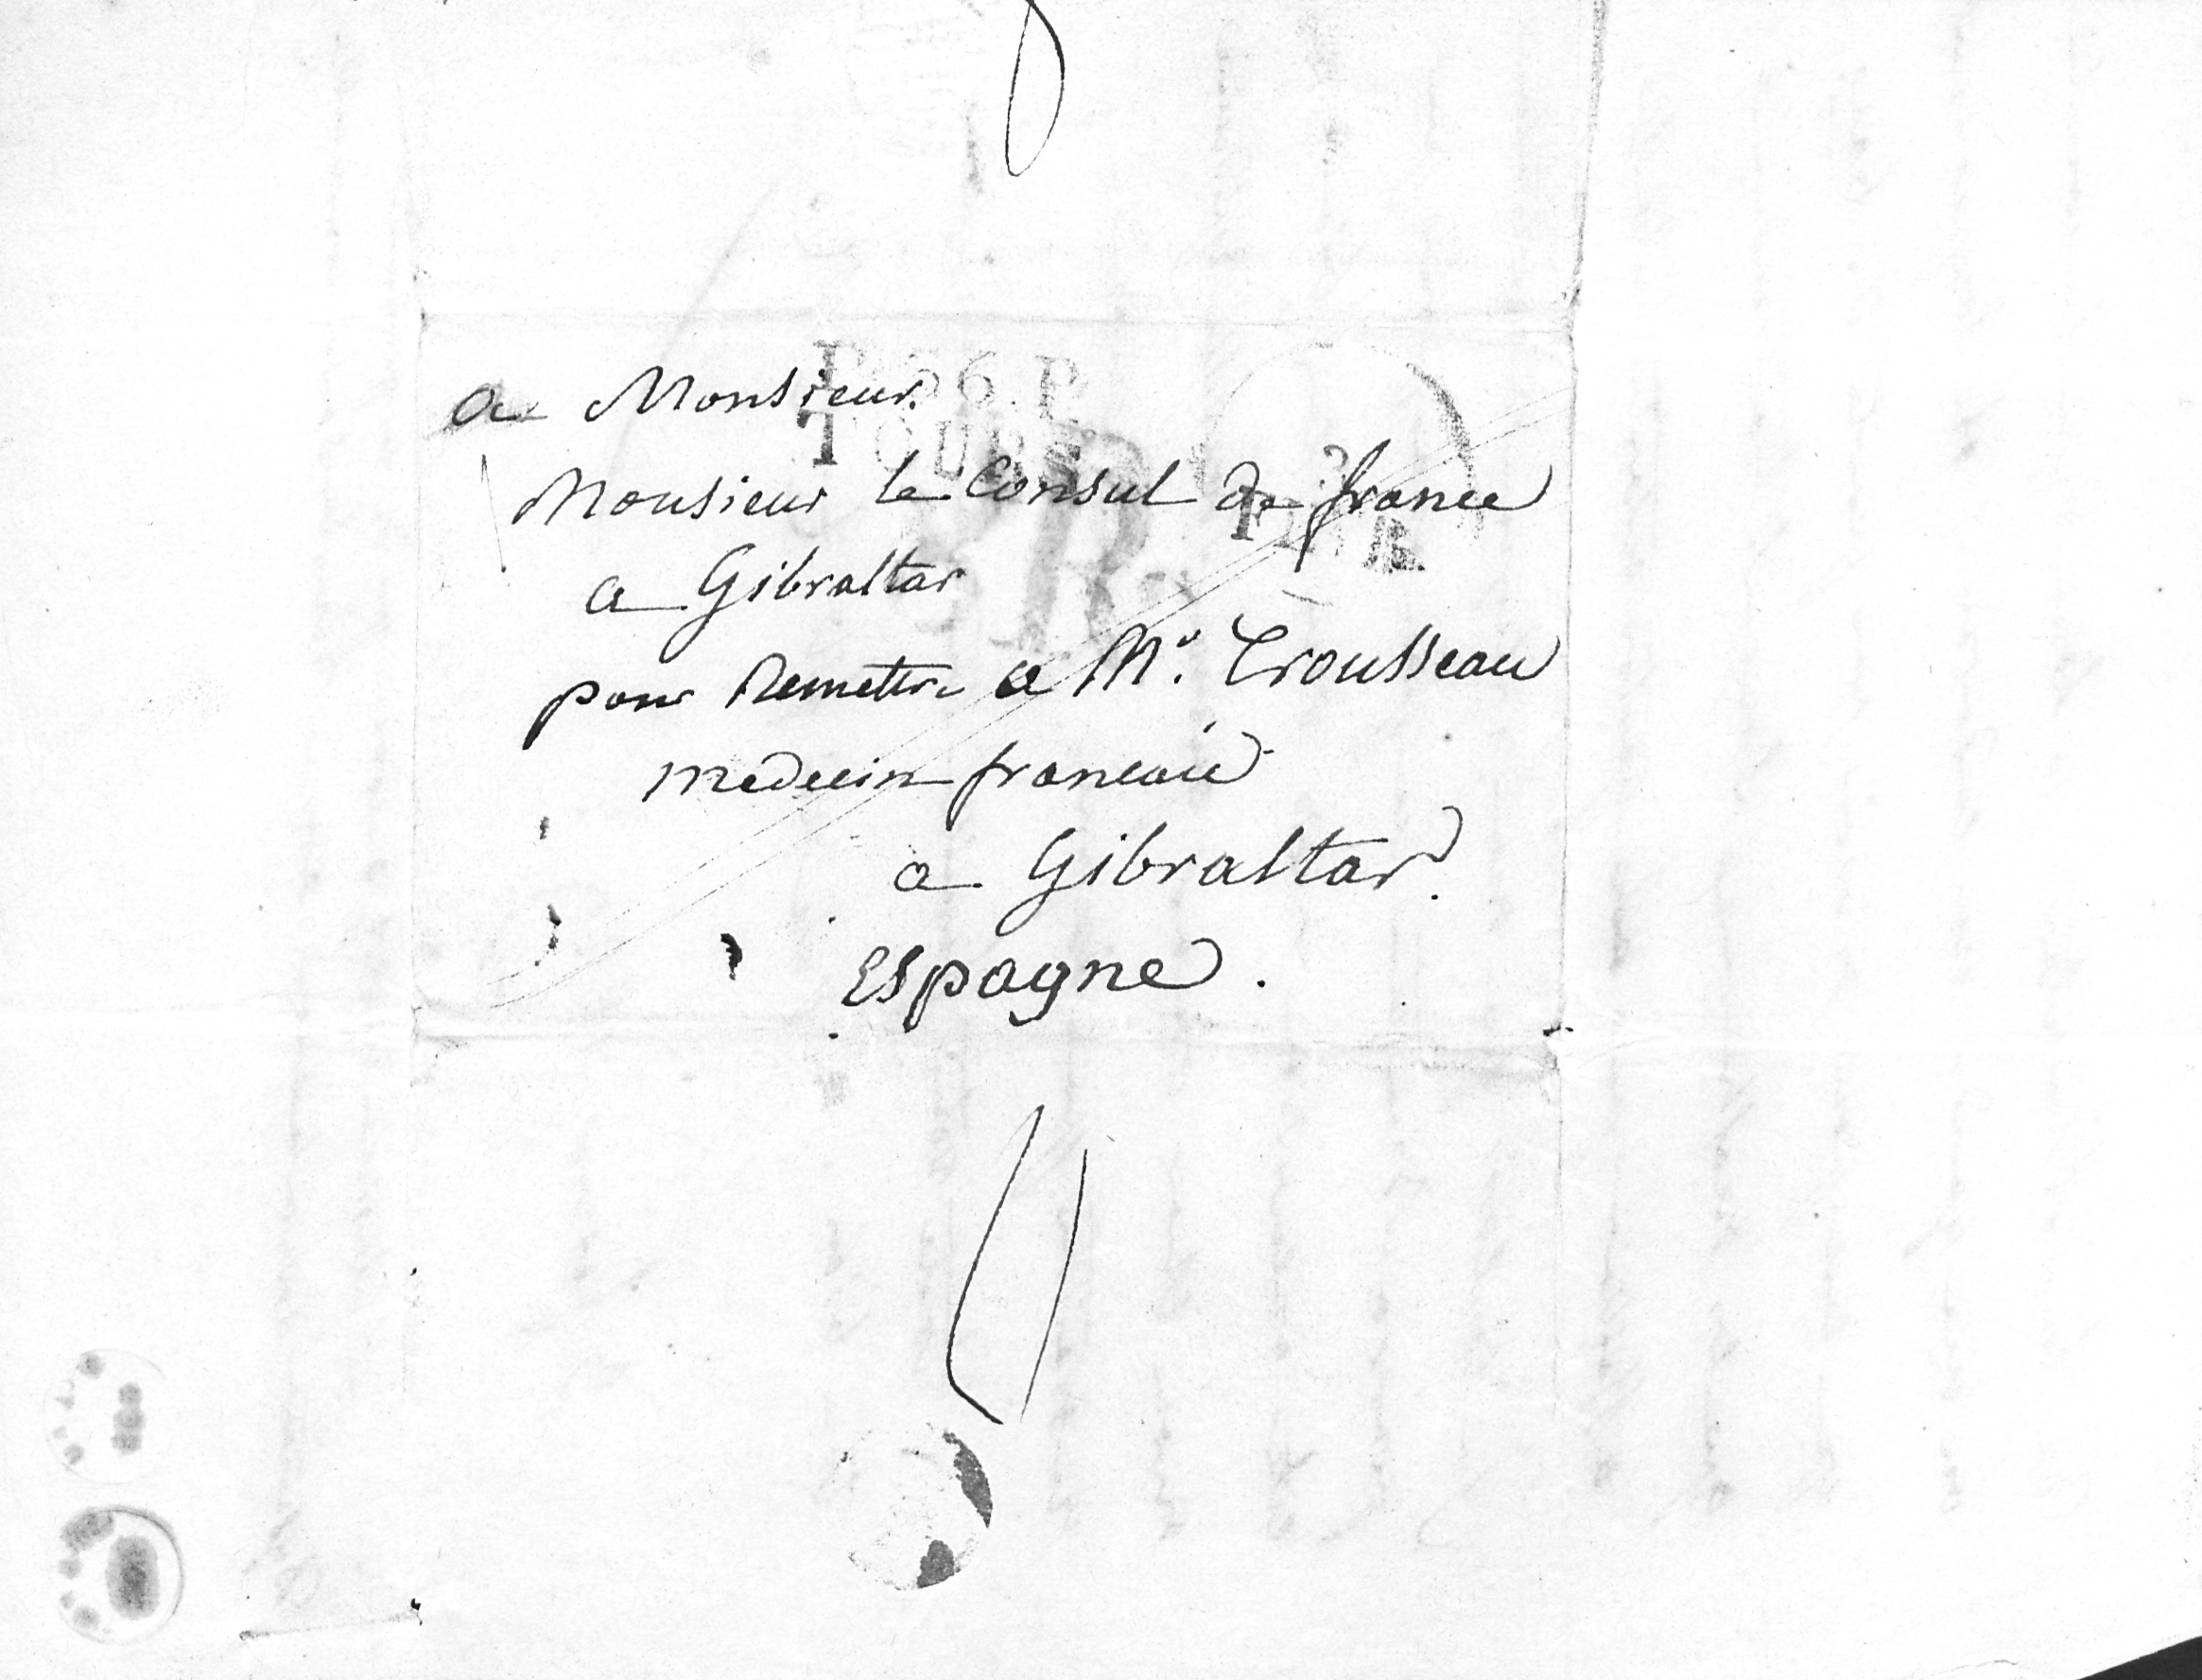 P. 36. P.
TOURS
a Monsieur
Monsieur le Consul de france
a Gibraltar
pour Remettre a Mr. Trousseau
medecin francais
a Gibraltar.
Espagne.